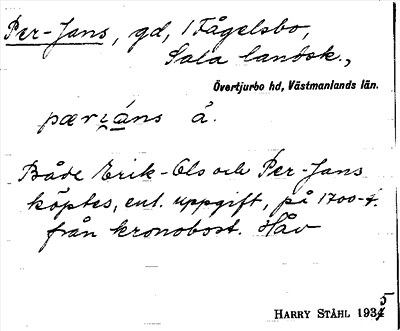 Per-Jans, gd, i Fågelsbo,
Sala landsk.,
Övertjurbo hd, Västmanlands län.
pærjá̱ns å.
Både Erik-Ols och Per-Jans
köptes, enl. uppgift, på 1700-t.
från kronobost. Håv
HARRY STÅHL 1935